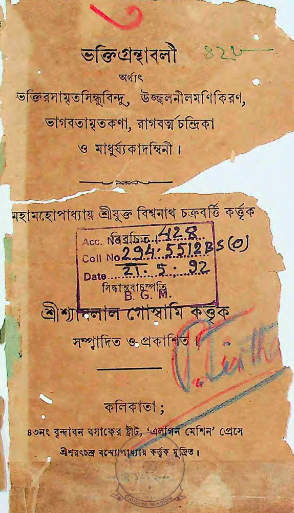 ভক্তিগ্রন্থাবলী ৪২৮
অর্থাৎ
ভক্তিরসামৃতসিন্ধুবিন্দু, উজ্জ্বলনীলমণিকিরণ,
ভাগবতামৃতকণা, রাগবর্ত্ম চন্দ্রিকা
ও মাধুর্য্যকাদম্বিনী।
মহামহোপাধ্যায় শ্রীযুক্ত বিশ্বনাথ চক্রবর্ত্তি কর্ত্তৃক
বিরচিত।
Acc. No. 428
Coll No 294.5512BS(O)
Date 21.5.92
B. G. M.
সিদ্ধান্তবাচস্পতি
শ্রীশ্যামলাল গোস্বামি কর্ত্তৃক
সম্পাদিত ও প্রকাশিত।
কলিকাতা;
৪৩নং বৃন্দাবন বসাকের ষ্ট্রীট, ‘এলগিন মেশিন’ প্রেসে
শ্রীশরচ্চন্দ্র বন্দ্যোপাধ্যায় কর্ত্তৃক মুদ্রিত।